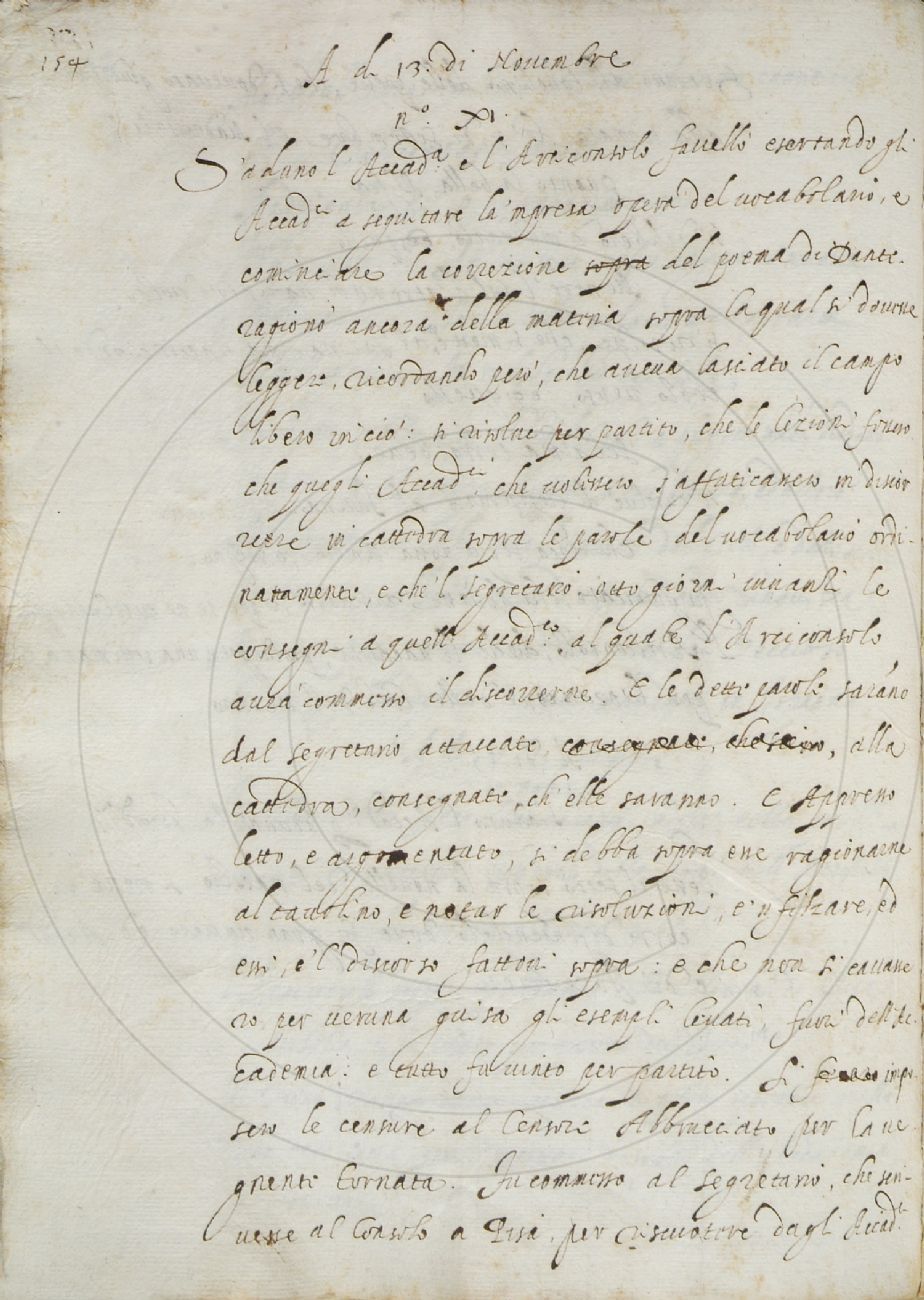 154
A dì 13. di Novembre
n.º XI.
S'adunò l'Accad.ª e l'Arciconsolo favellò esortando gli
Accad.ci a seguitare la 'mpresa opera del vocabolario, e
cominciare la correzione sopra del poema di Dante.
ragionò ancora della materia sopra la qual si dovene
leggere, ricordando però, che aveva lasciato il campo
libero in ciò: si risolve per partito, che le lezioni fonero
che quegli Accad.ci che volenero s'affaticanero in discor
rere in cattedra sopra le parole del vocabolario ordi-
natamente, e che'l segretario otto giorni innanzi le
consegni a quell'Accad.co al quale l'Arciconsolo
avrà commesso il discorrerne. E le dette parole saranno
dal segretario attaccate, consegnate, che sieno, alla
cattedra, consegnate, ch'elle saranno. E Appresso
letto, e argomentato, si debba sopra esse ragionarne
al tavolino, e notar le risoluzioni, e 'nfilzare, ed
essi, e 'l discorso fattovi sopra: e che non si cavasse
ro per veruna guisa gli esempli levati, fuori dell'Ac
cademia: e tutto fu vinto per partito. Si impo-
sero le censure al Censore Abbracciato per la ve-
gnente tornata. Fu commesso al segretario, che scri-
vesse al Consolo a Pisa, per riscuotere dagli Accad.ci